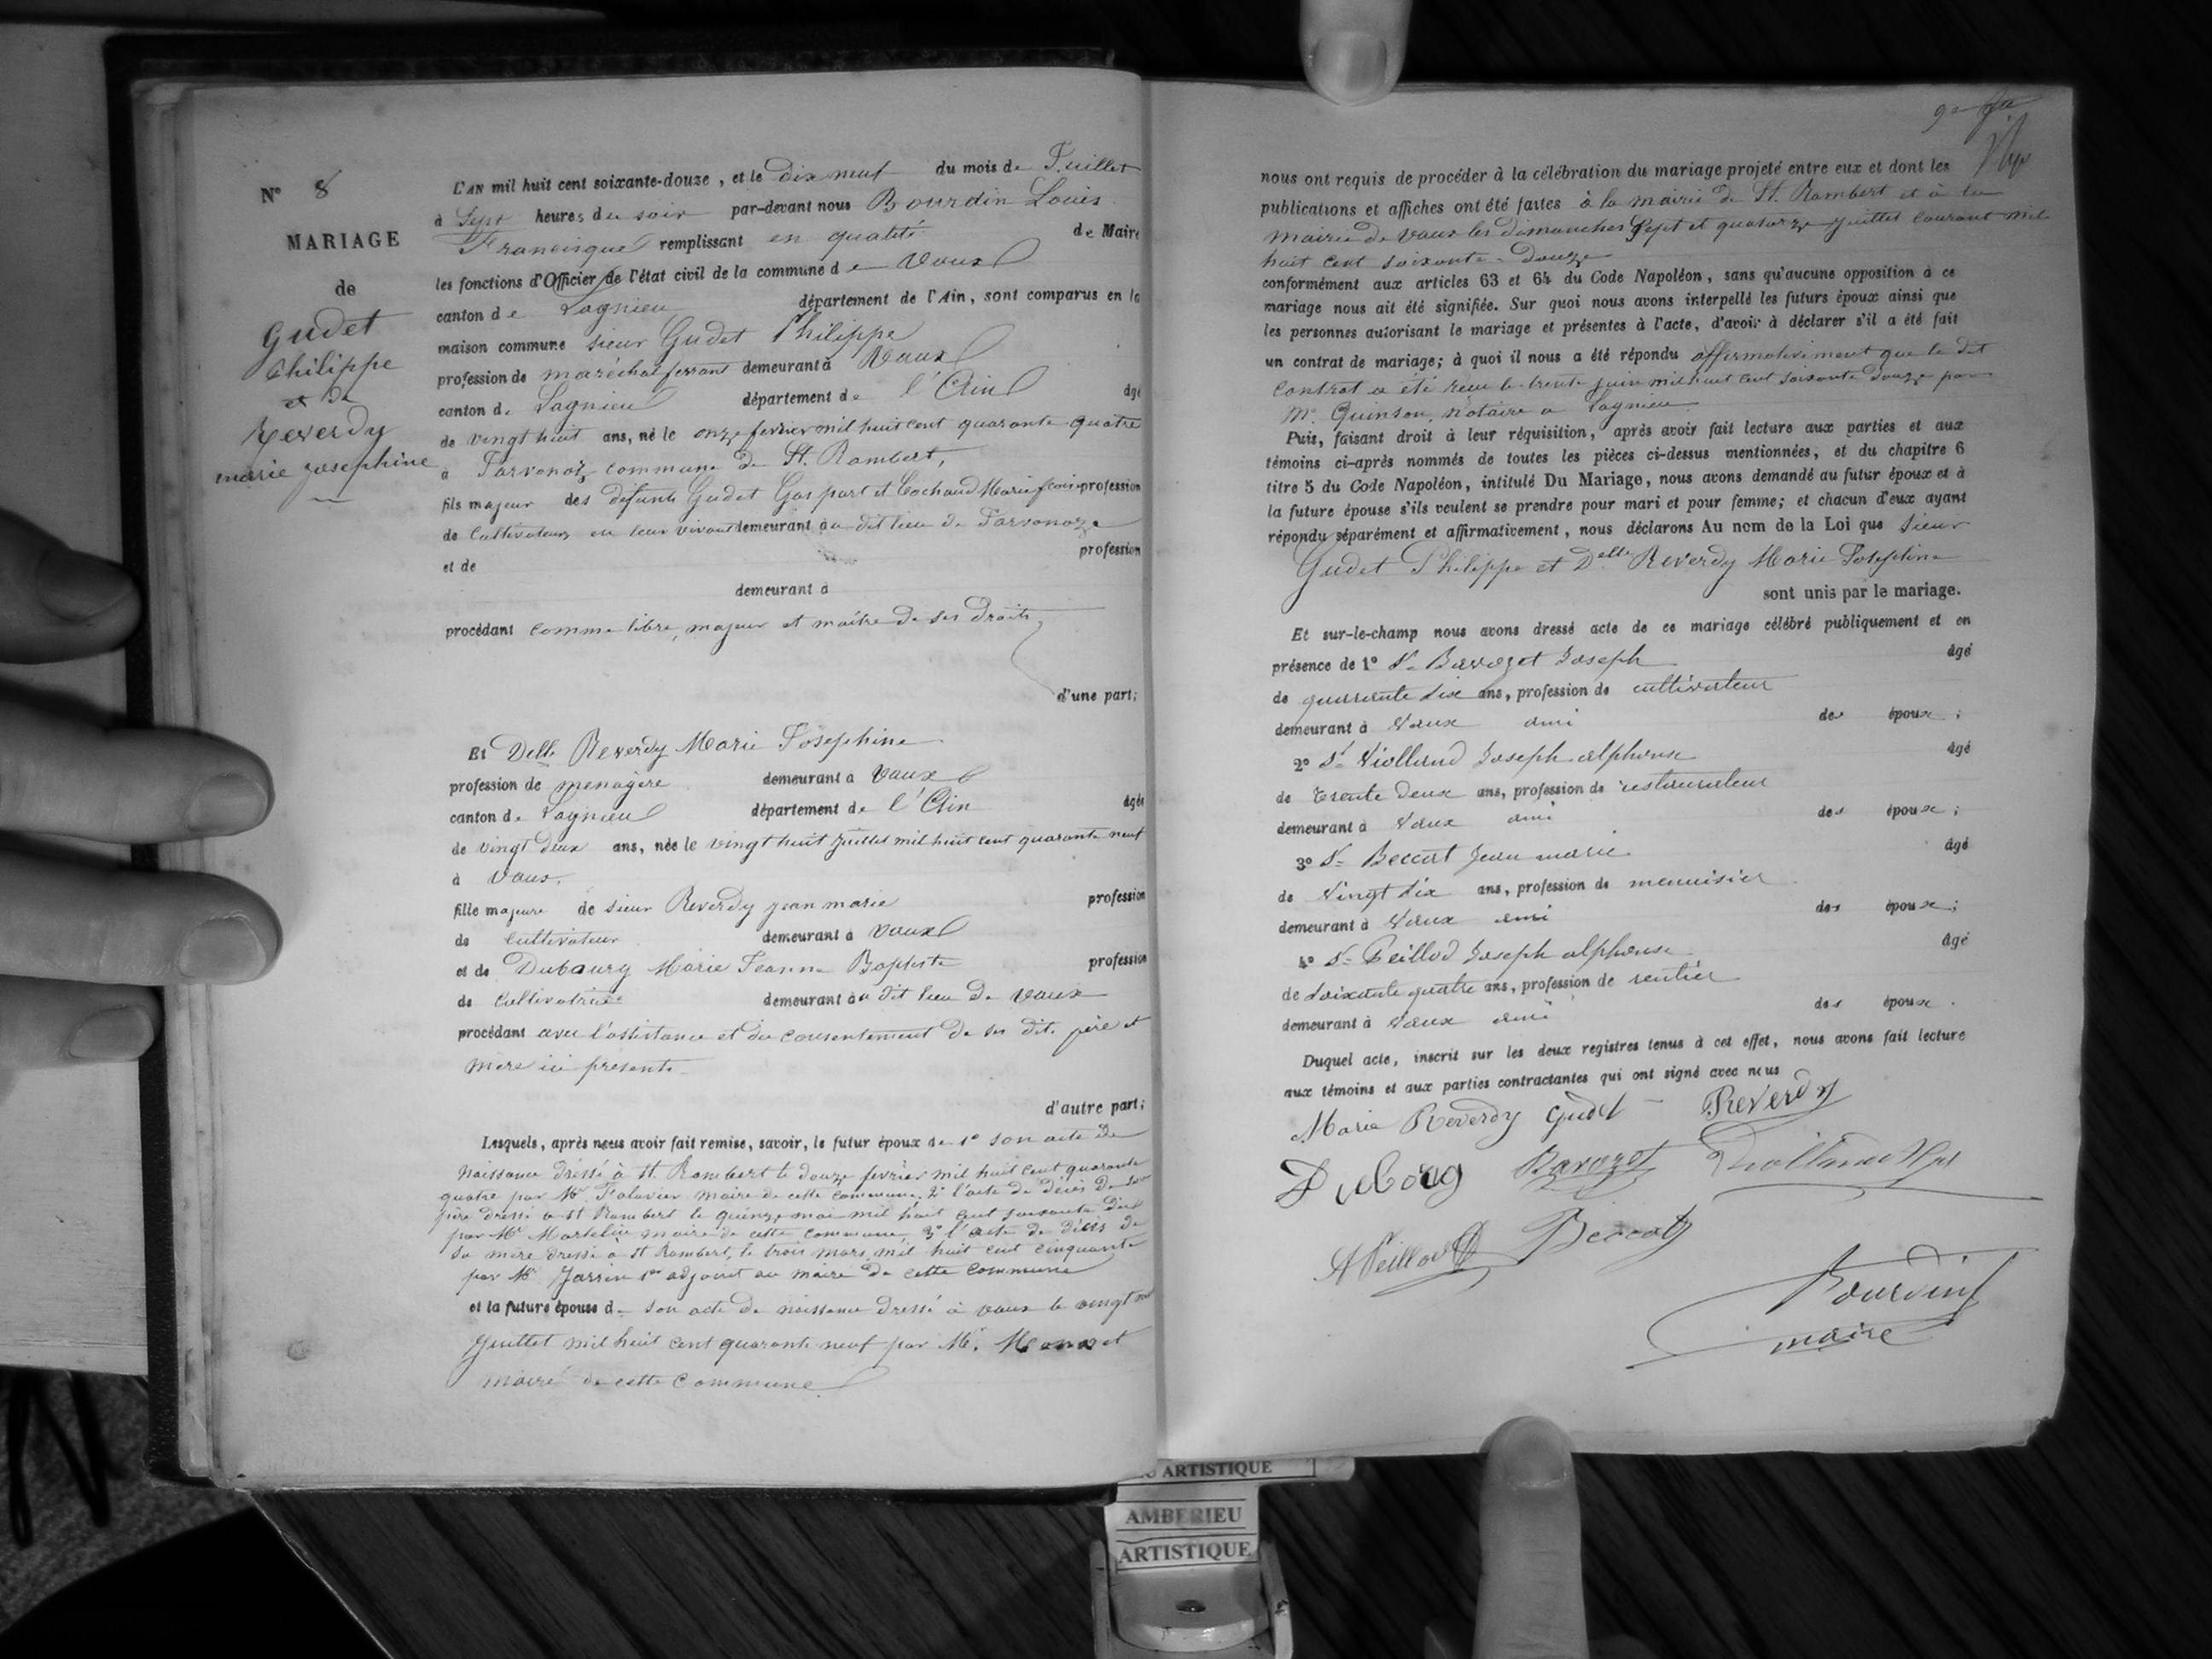 N° 8
MARIAGE
de
Gudet
Philippe
et de
Reverdy
marie josephine
L'AN mil huit cent soixante-douze, et le dix neuf du mois de Juillet
à Sept heures du soir par-devant nous Bourdin Louis
Francisque remplissant en qualité de Maire
les fonctions d'Officier de l'état civil de la commune de Vaux
canton de Lagnieu département de l'Ain, sont comparus en la
maison commune sieur Gudet Philippe
profession de maréchal ferrant demeurant à Vaux
canton de Lagnieu département de l'Ain âgé
de vingt huit ans, né le onze fevrier mil huit cent quarante quatre
à commune de St. Rambert,
fils majeur des défunts Gudet Gaspart et Cochaud Marie profession
de Cultivateurs en leur vivant demeurant au dit lieu de
et de profession
demeurant à
procédant comme libre, majeur et maître de ses droits,
d'une part;
Et Delle Reverdy Marie Josephine
profession de menagère demeurant à Vaux
canton de Lagnieu département de l'Ain âgée
de vingt deux ans, née le vingt huit juillet mil huit cent quarante neuf
à Vaux.
fille majeure de sieur Reverdy jean marie profession
de Cultivateur demeurant à Vaux
et de Dubourg Marie Jeanne Baptiste profession
de Cultivatrice demeurant au dit lieu de Vaux
procédant avec l'assistance et du consentement de ses dits père et
mère ici présents
d'autre part;
Lesquels, après nous avoir fait remise, savoir, le futur époux de 1° son acte de
naissance dressé à St. Rambert le douze fevrier mil huit cent quarante
quatre par Mr. maire de cette commune. 2° l'acte de décès de son
père dressé à St Rambert le quinze mai mil huit cent soixante
par Mr Martelin maire de cette commune 3° l'acte de décès de
sa mère dressé à St Rambert, le trois mars mil huit cent cinquante
par Mr Jarrin 1er adjoint au maire de cette commune
et la future épouse de son acte de naissance dressé à vaux le vingt
juillet mil huit cent quarante neuf par Mr.
maire de cette commune
nous ont requis de procéder à la célébration du mariage projeté entre eux et dont les
publications et affiches ont été faites à la mairie de St. Rambert et à la
mairie de Vaux les dimanches Sept et quatorze juillet courant mil
huit cent soixante-douze
conformément aux articles 63 et 64 du Code Napoléon, sans qu'aucune opposition à ce
mariage nous ait été signifiée. Sur quoi nous avons interpellé les futurs époux ainsi que
les personnes autorisant le mariage et présentes à l'acte, d'avoir à déclarer s'il a été fait
un contrat de mariage; à quoi il nous a été répondu affirmativement que le dit
Contrat a été reçu le trente juin mil huit cent soixante douze par
Me. Quinson, notaire a Lagnieu
Puis, faisant droit à leur réquisition, après avoir fait lecture aux parties et aux
témoins ci-après nommés de toutes les pièces ci-dessus mentionnées, et du chapitre 6
titre 5 du Code Napoléon, intitulé Du Mariage, nous avons demandé au futur époux et à
la future épouse s'ils veulent se prendre pour mari et pour femme; et chacun d'eux ayant
répondu séparément et affirmativement, nous déclarons Au nom de la Loi que Sieur
Gudet Philippe et Delle Reverdy Marie Josephine
sont unis par le mariage.
Et sur-le-champ nous avons dressé acte de ce mariage célébré publiquement et en
présence de 1° Sr Bavozet Joseph âgé
de quarante six ans, profession de cultivateur
demeurant à Vaux ami des époux;
2° Sr Violland Joseph alphonse âgé
de trente deux ans, profession de restaurateur
demeurant à Vaux ami des époux;
3° Sr Beccat Jean marie âgé
de Vingt six ans, profession de menuisier
demeurant à Vaux ami des époux;
4° Sr Peillod Joseph alphonse âgé
de Soixante quatre ans, profession de rentier
demeurant à Vaux ami des époux.
Duquel acte, inscrit sur les deux registres tenus à cet effet, nous avons fait lecture
aux témoins et aux parties contractantes qui ont signé avec nous
Marie Reverdy Gudet Reverdy
Duborg Bavozet Violland
A Peillod Beccat
Bourdin
maire
ARTISTIQUE
AMBERIEU
ARTISTIQUE